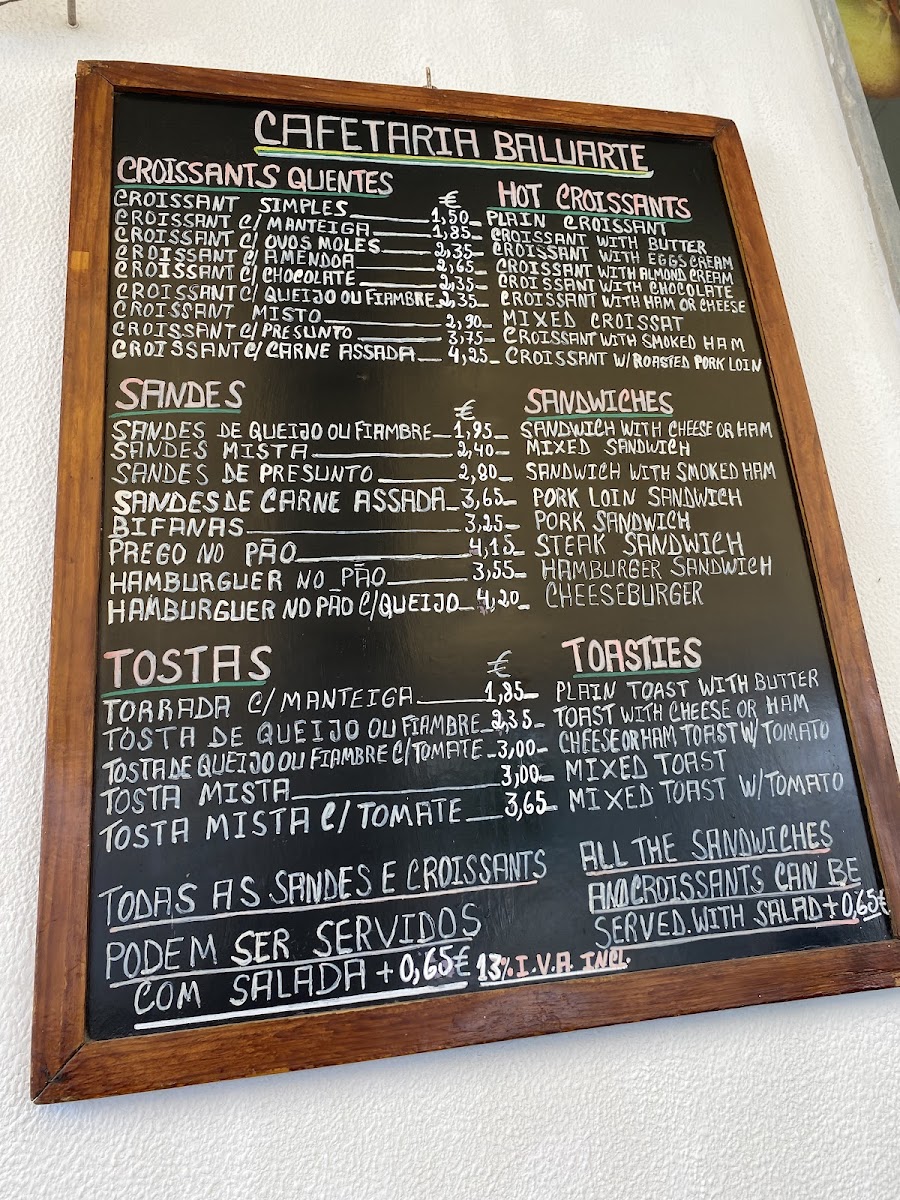 CAFETARIA BALUARTE
CROISSANTS QUENTES € HOT CROISSANTS
CROISSANT SIMPLES 1,50 PLAIN CROISSANT
CROISSANT C/ MANTEIGA 1,85 CROISSANT WITH BUTTER
CROISSANT C/ OVOS MOLES 2,35 CROISSANT WITH EGGS CREAM
CROISSANT C/ AMENDOA 2,65 CROISSANT WITH ALMOND CREAM
CROISSANT C/ CHOCOLATE 2,35 CROISSANT WITH CHOCOLATE
CROISSANT C/ QUEIJO OU FIAMBRE 2,35 CROISSANT WITH HAM OR CHEESE
CROISSANT MISTO 2,90 MIXED CROISSAT
CROISSANT C/ PRESUNTO 3,75 CROISSANT WITH SMOKED HAM
CROISSANT C/ CARNE ASSADA 4,25 CROISSANT W/ROASTED PORK LOIN
SANDES € SANDWICHES
SANDES DE QUEIJO OU FIAMBRE 1,95 SANDWICH WITH CHEESE OR HAM
SANDES MISTA 2,40 MIXED SANDWICH
SANDES DE PRESUNTO 2,80 SANDWICH WITH SMOKED HAM
SANDES DE CARNE ASSADA 3,65 PORK LOIN SANDWICH
BIFANAS 3,25 PORK SANDWICH
PREGO NO PÃO 4,15 STEAK SANDWICH
HAMBURGUER NO PÃO 3,55 HAMBURGER SANDWICH
HAMBURGUER NO PÃO C/QUEIJO 4,20 CHEESEBURGER
TOSTAS € TOASTIES
TORRADA C/ MANTEIGA 1,85 PLAIN TOAST WITH BUTTER
TOSTA DE QUEIJO OU FIAMBRE 2,35 TOAST WITH CHEESE OR HAM
TOSTA DE QUEIJO OU FIAMBRE C/TOMATE 3,00 CHEESE OR HAM TOAST W/TOMATO
TOSTA MISTA 3,00 MIXED TOAST
TOSTA MISTA C/TOMATE 3,65 MIXED TOAST W/TOMATO
TODAS AS SANDES E CROISSANTS
PODEM SER SERVIDOS
COM SALADA + 0,65€
ALL THE SANDWICHES
AND CROISSANTS CAN BE
SERVED. WITH SALAD + 0,65€
13% I.V.A. INCL.